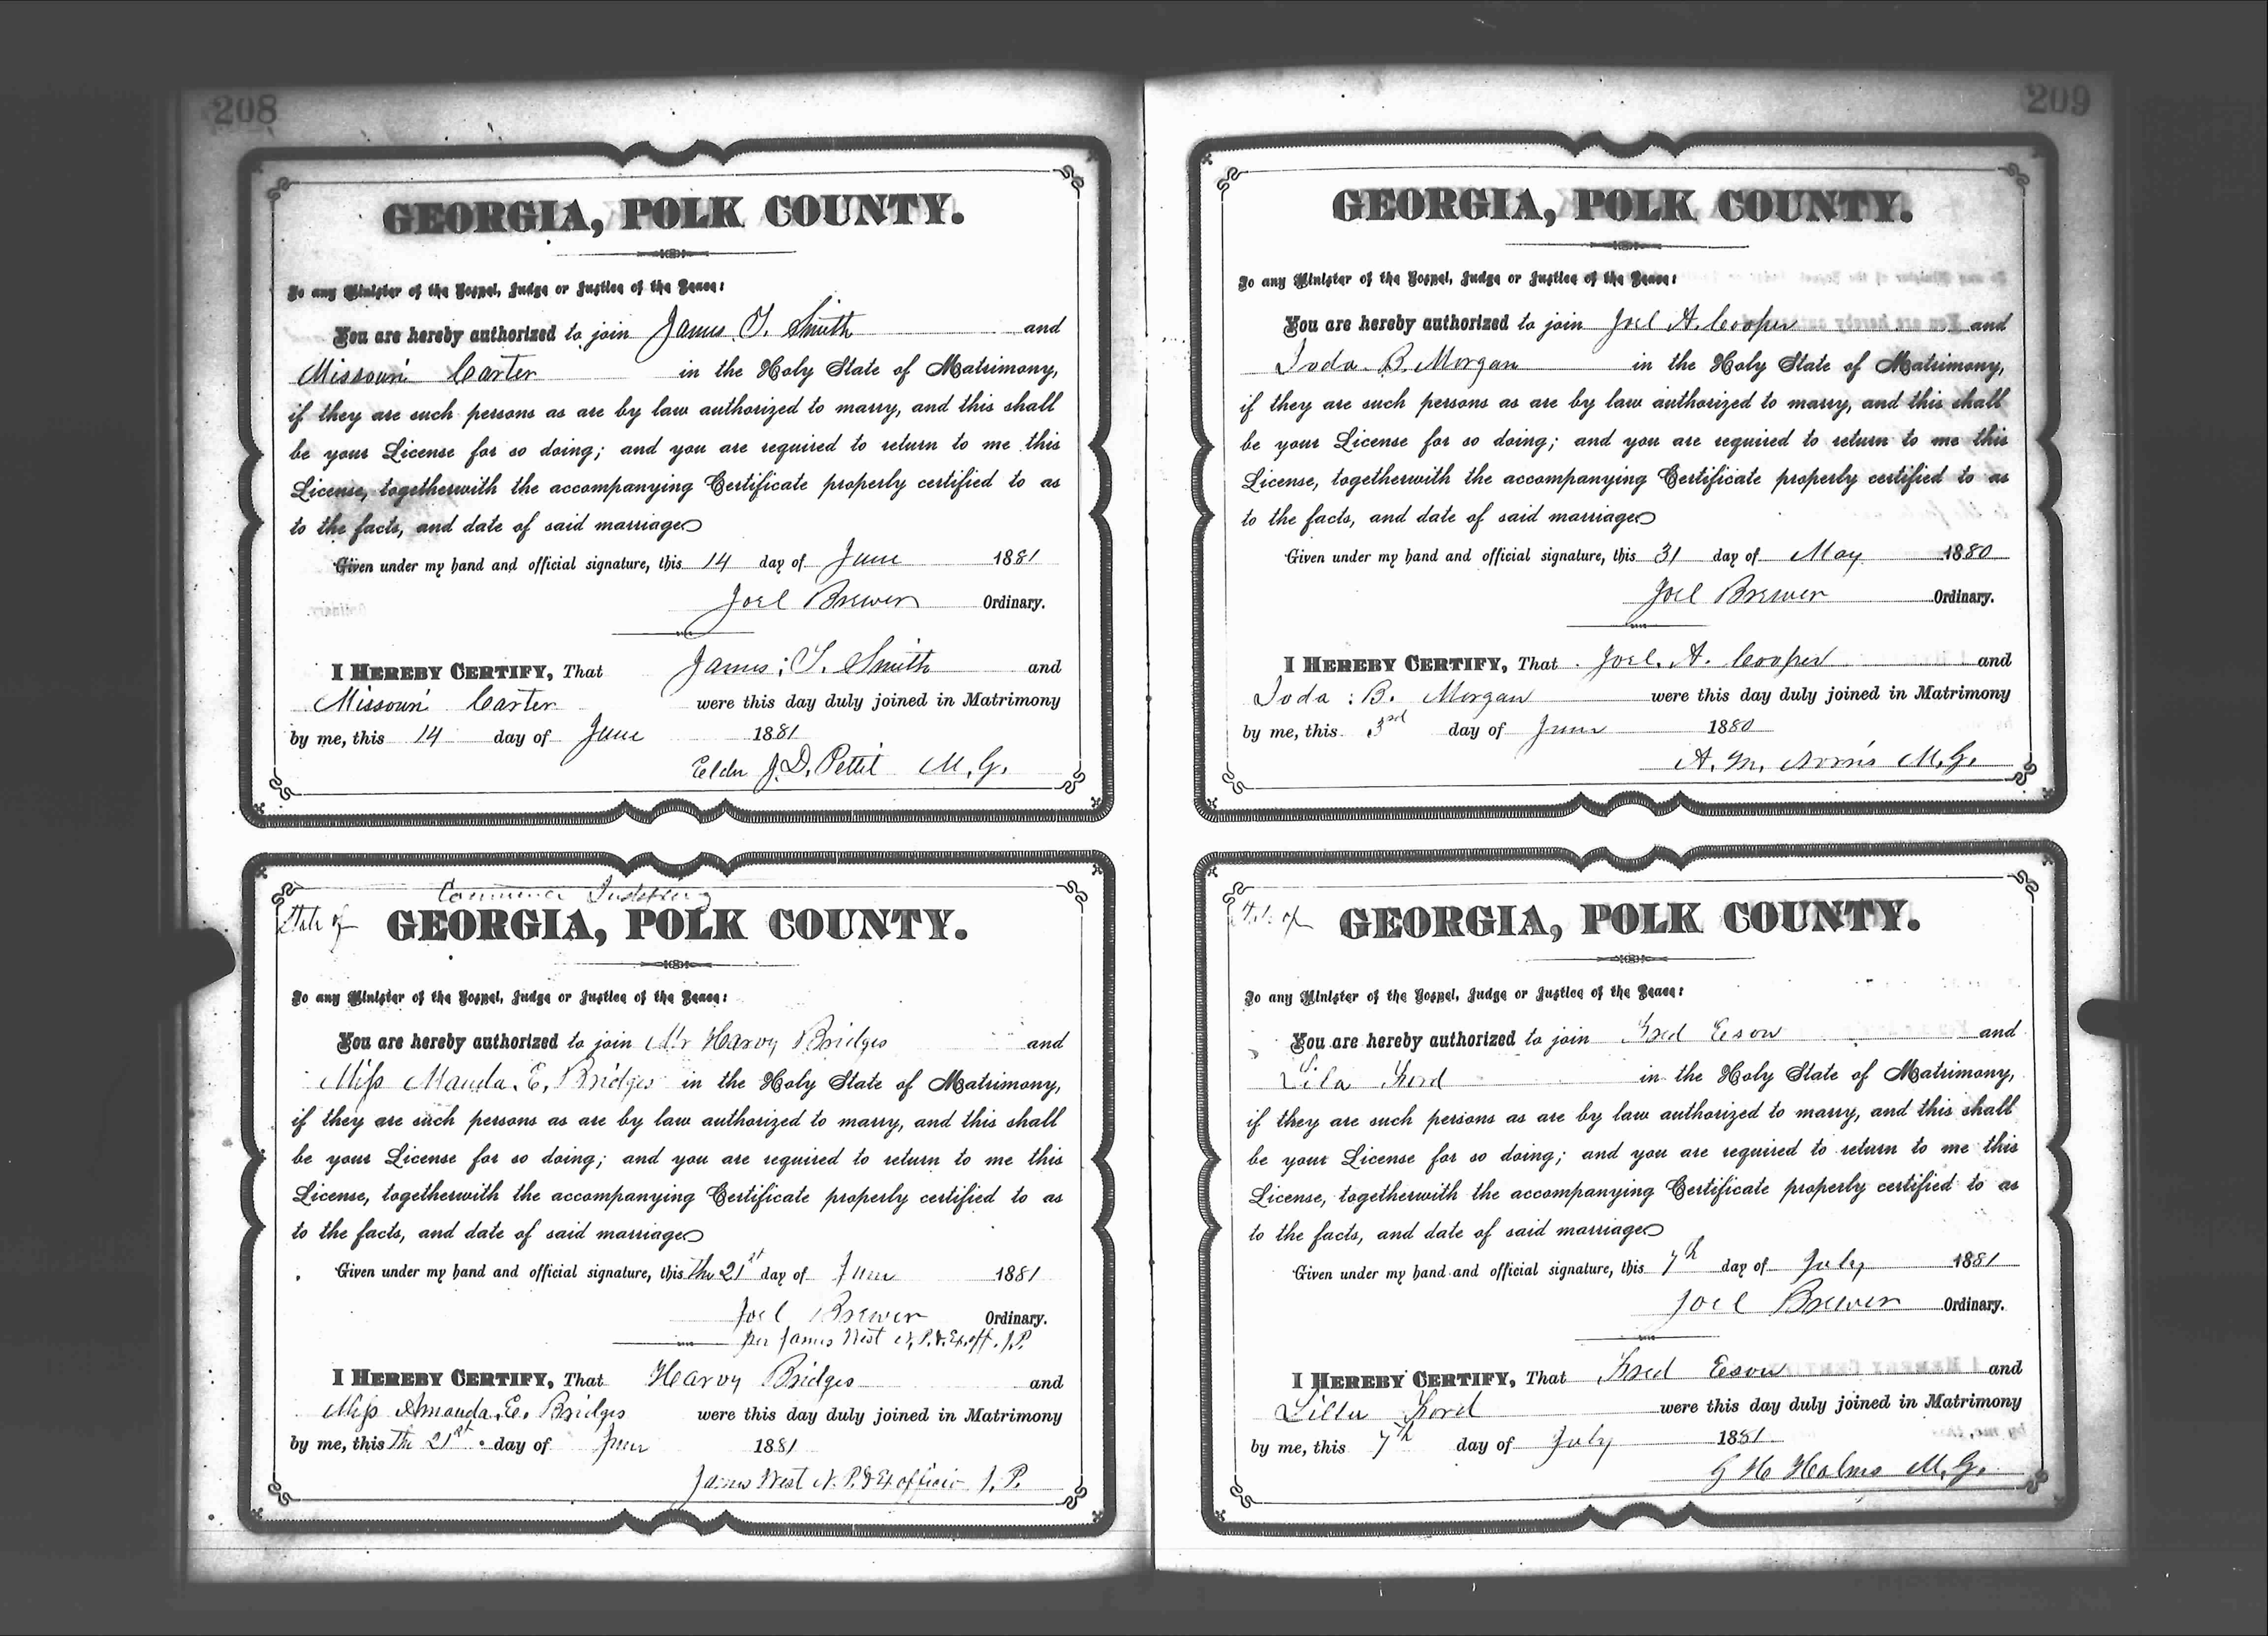 208
GEORGIA, POLK COUNTY.
To any Minister of the Gospel, Judge or Justice of the Peace:
You are hereby authorized to join James T. Smith and
Missouri Carter in the Holy State of Matrimony,
if they are such persons as are by law authorized to marry, and this shall
be your License for so doing; and you are required to return to me this
License, togetherwith the accompanying Certificate properly certified to as
to the facts, and date of said marriage
Given under my hand and official signature, this 14 day of June 1881
Joel Brewer Ordinary.
I HEREBY CERTIFY, That James : T. Smith and
Missouri Carter were this day duly joined in Matrimony
by me, this 14 day of June 1881
Elder J. D. Pettit M. G.
Commence Indexing
State of GEORGIA, POLK COUNTY.
To any Minister of the Gospel, Judge or Justice of the Peace:
You are hereby authorized to join Mr Harvy Bridges and
Miss Manda. E. Bridges in the Holy State of Matrimony,
if they are such persons as are by law authorized to marry, and this shall
be your License for so doing; and you are required to return to me this
License, togetherwith the accompanying Certificate properly certified to as
to the facts, and date of said marriage
Given under my hand and official signature, this The 21st day of June 1881
Joel Brewer Ordinary.
per James West N. P. & Ex. off. J. P.
I HEREBY CERTIFY, That Harvy Bridges and
Miss Amanda. E. Bridges were this day duly joined in Matrimony
by me, this The 21st day of June 1881
James West N. P. & Ex officio J. P.
209
GEORGIA, POLK COUNTY.
To any Minister of the Gospel, Judge or Justice of the Peace:
You are hereby authorized to join Joel A. Cooper and
Ioda. B. Morgan in the Holy State of Matrimony,
if they are such persons as are by law authorized to marry, and this shall
be your License for so doing; and you are required to return to me this
License, togetherwith the accompanying Certificate properly certified to as
to the facts, and date of said marriage
Given under my hand and official signature, this 31 day of May 1880
Joel Brewer Ordinary.
I HEREBY CERTIFY, That Joel. A. Cooper and
Ioda : B. Morgan were this day duly joined in Matrimony
by me, this 3rd day of June 1880
A. M. Norris M. G.
GEORGIA, POLK COUNTY.
To any Minister of the Gospel, Judge or Justice of the Peace:
You are hereby authorized to join Fred Eson and
Lila Ford in the Holy State of Matrimony,
if they are such persons as are by law authorized to marry, and this shall
be your License for so doing; and you are required to return to me this
License, togetherwith the accompanying Certificate properly certified to as
to the facts, and date of said marriage
Given under my hand and official signature, this 7th day of July 1881
Joel Brewer Ordinary.
I HEREBY CERTIFY, That Fred Eson and
Lilla Ford were this day duly joined in Matrimony
by me, this 7th day of July 1881
G H Holms M. G.